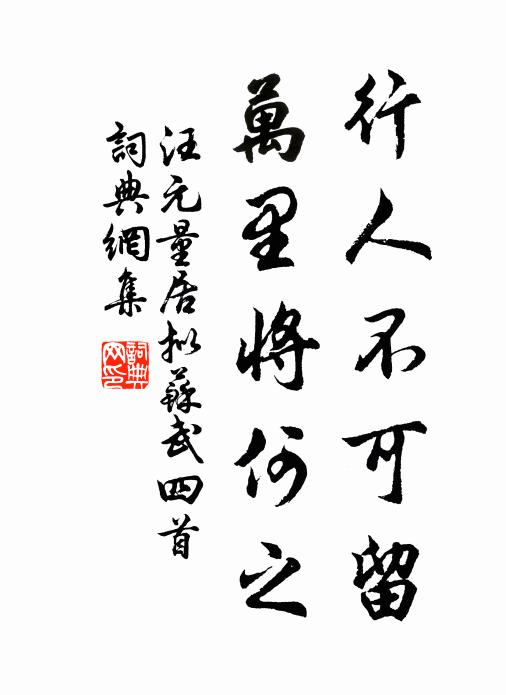 行人不可留
萬里將何之
汪元量居拟蘇武四首
詞典網集
詞典
网印